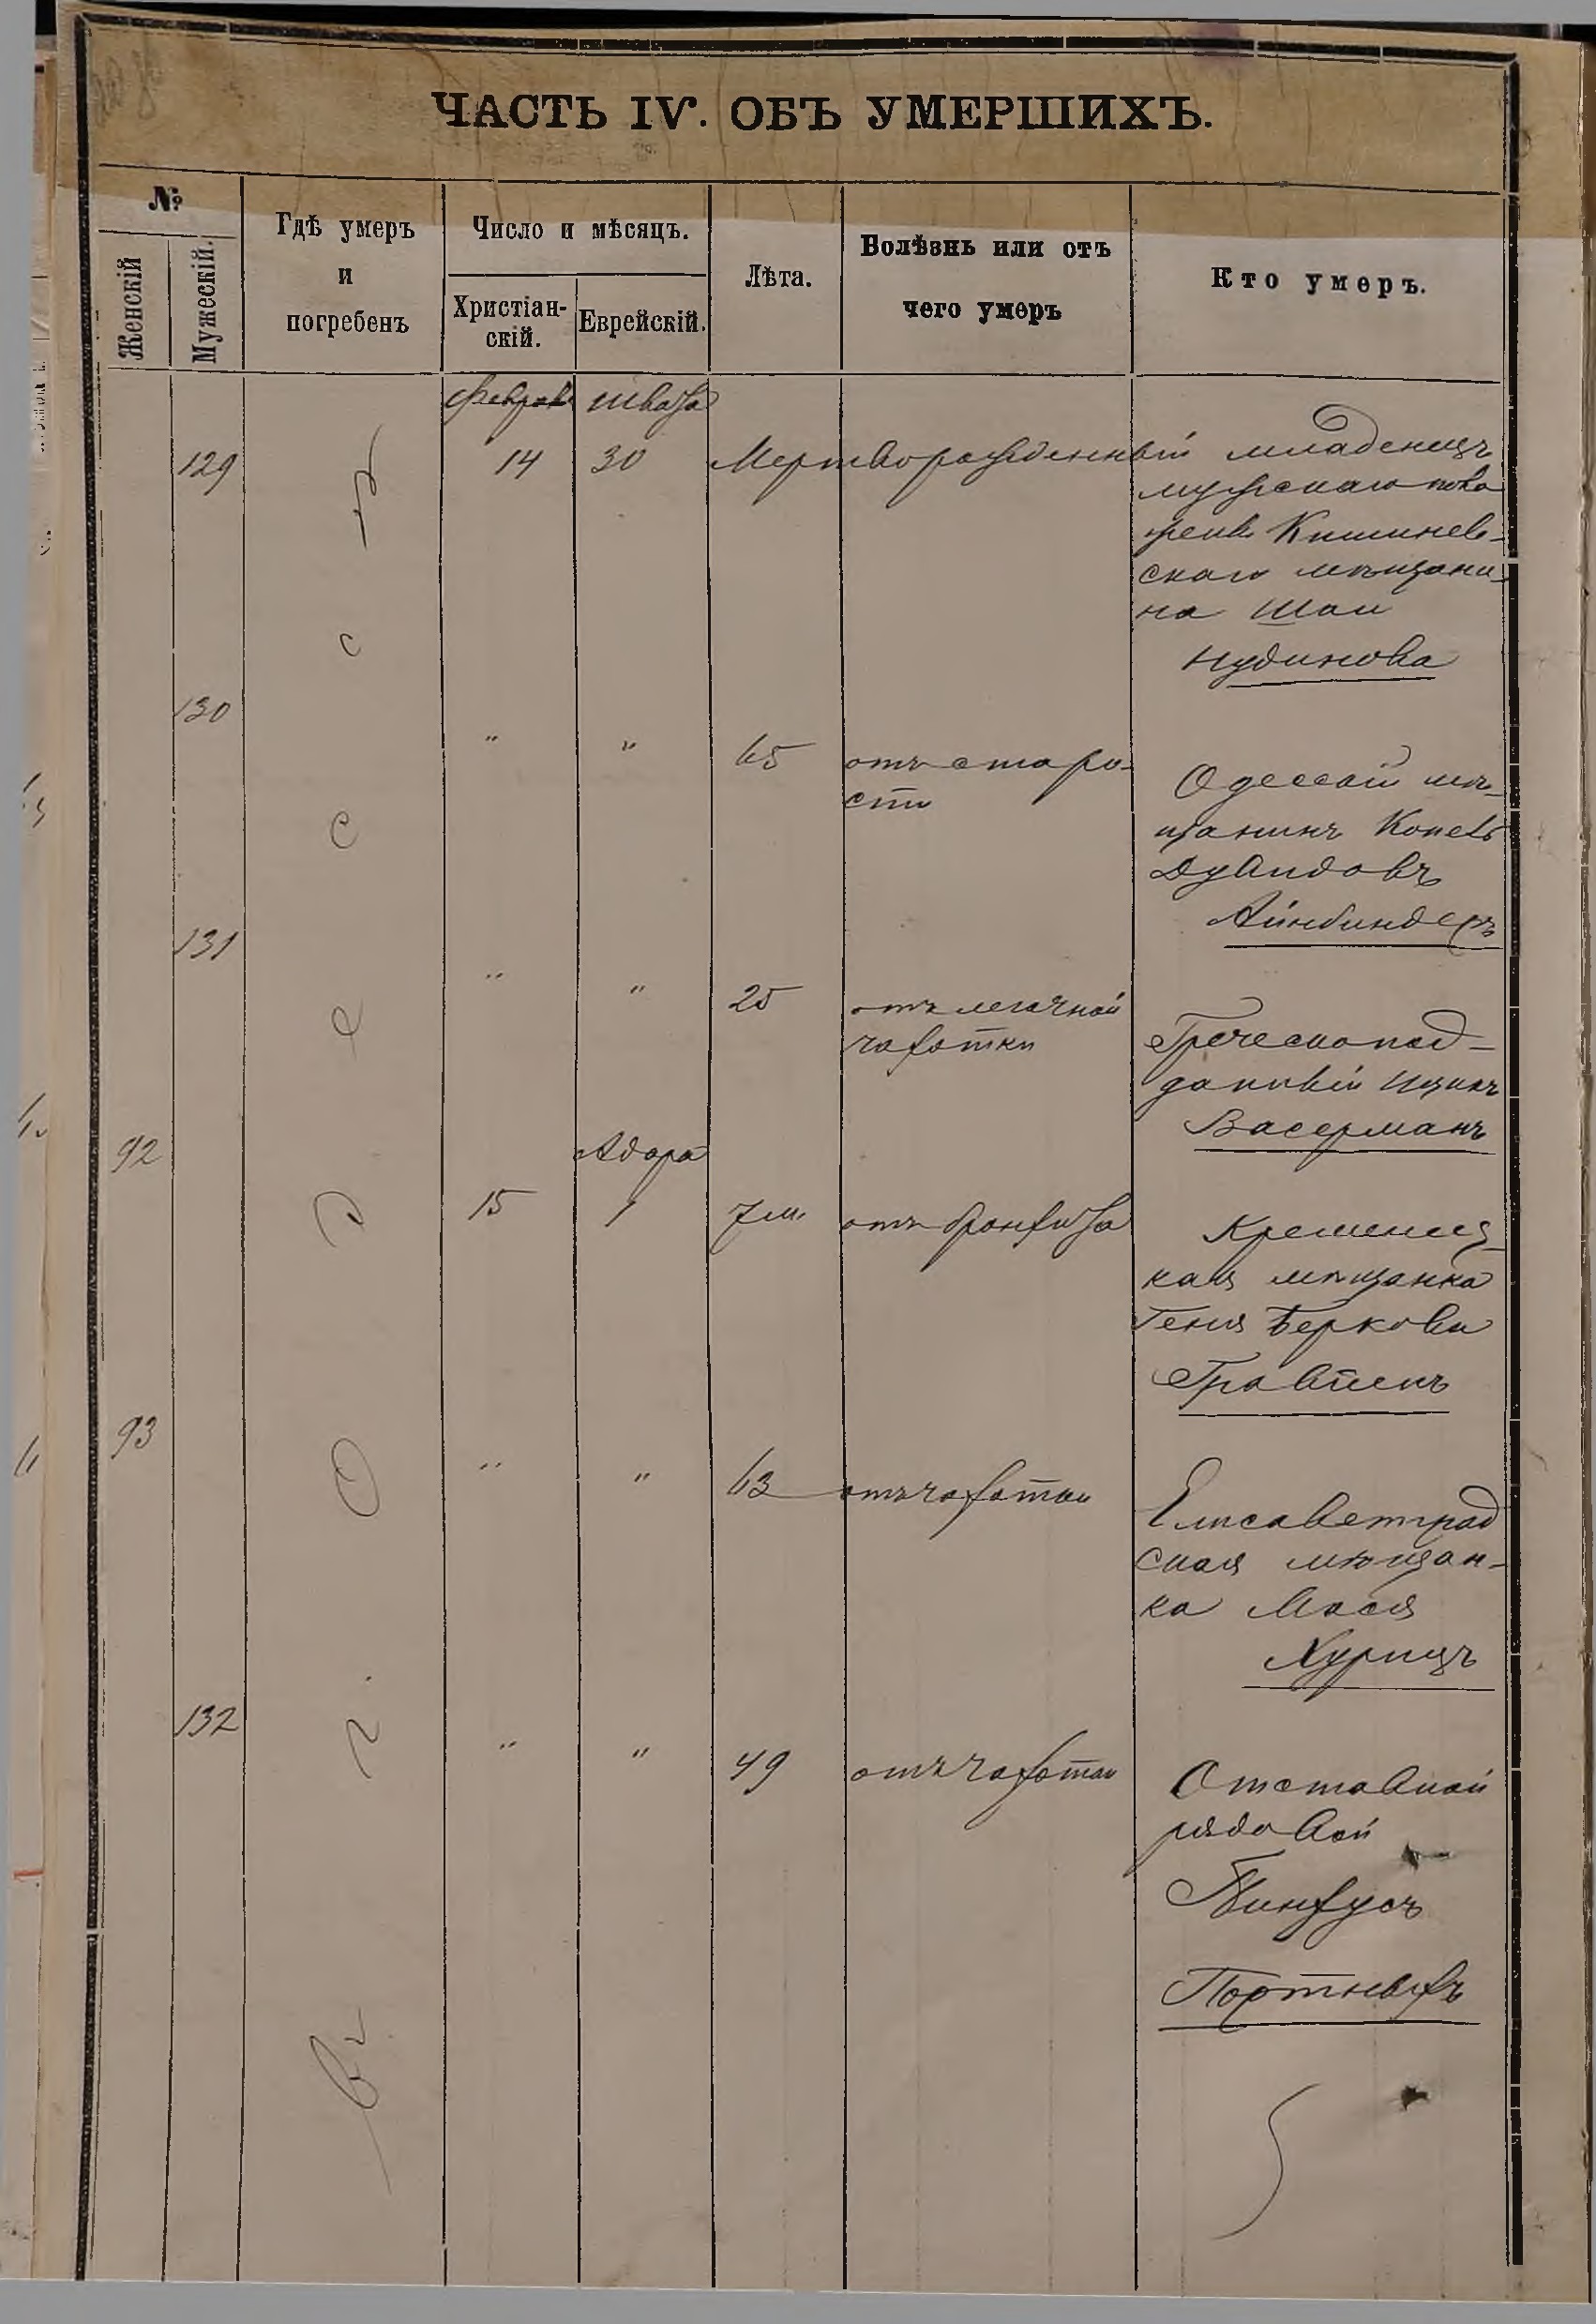 ЧАСТЬ IV. ОБЪ УМЕРШИХЪ.
№
Женскій
Мужескій.
Гдѣ умеръ
и
погребенъ
Число и мѣсяцъ.
Христіан-
скій.
Еврейскій.
Лѣта.
Болѣзнь или отъ
чего умеръ
Кто умеръ.
въ г. Одессѣ
129 14 30 Мертворожденный младенецъ
мужскаго пола
Кишинев-
скаго мѣщани-
на Шаи
Нудинова
130 " " 65 отъ старо-
сти
Одесскій мѣ-
щанинъ
Дувидовъ
Айнбиндеръ
131 " " 25 отъ легочной
чахотки
Греческопод-
данный Ицикъ
Васерманъ
Адара
92 15 1 7 м. отъ бронхита
Кременец-
кая мѣщанка
Геня Беркова
93 " " 63 отъ чахотки
Елисаветград
ская мѣщан-
ка Мася
Хурицъ
132 " " 49 отъ чахотки
Отставной
рядовой
Пинхусъ
Портныхъ